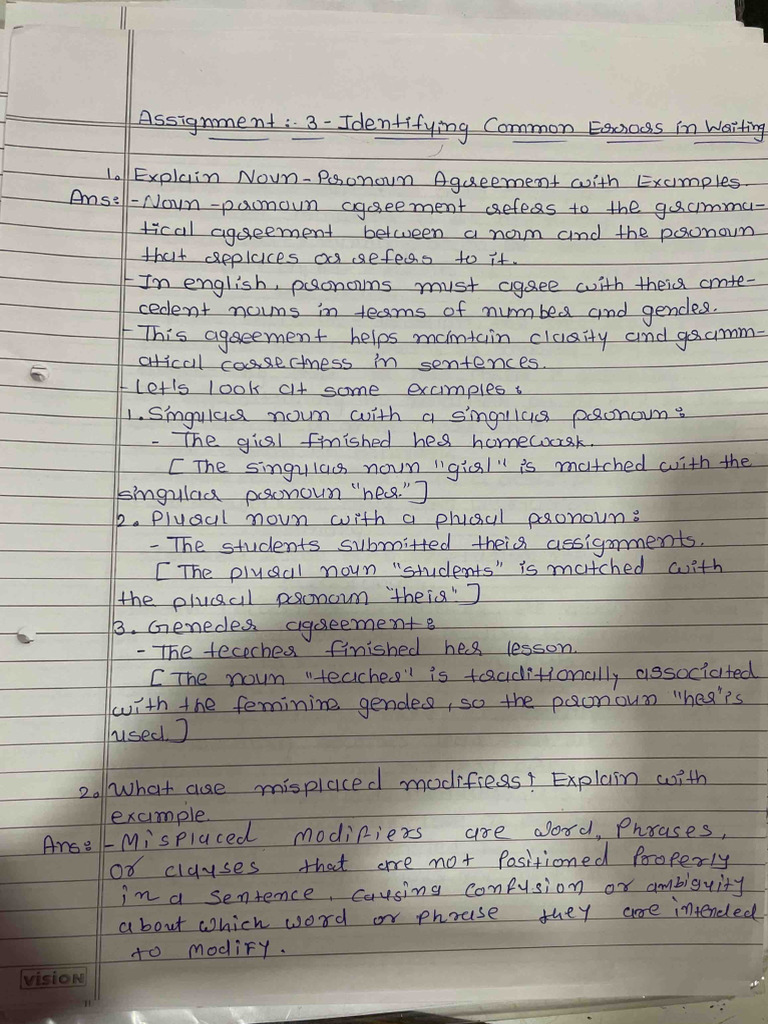 Assignment :- 3 - Identifying Common Errors in Writing
1. Explain Noun-Pronoun Agreement with Examples.
Ans:- - Noun-pronoun agreement refers to the gramma-
tical agreement between a noun and the pronoun
that replaces or refers to it.
- In english, pronouns must agree with their ante-
cedent nouns in terms of number and gender.
- This agreement helps maintain clarity and gramm-
atical correctness in sentences.
- Let's look at some examples:
1. Singular noun with a singular pronoun:
- The girl finished her homework.
[ The singular noun "girl" is matched with the
singular pronoun "her."]
2. Plural noun with a plural pronoun:
- The students submitted their assignments.
[ The plural noun "students" is matched with
the plural pronoun "their" ]
3. Geneder agreement:
- The teacher finished her lesson.
[ The noun "teacher" is traditionally associated
with the feminine gender, so the pronoun "her" is
used.]
2. What are misplaced modifiers? Explain with
example.
Ans:- - Misplaced modifiers are word, Phrases,
or clauses that are not Positioned Properly
in a sentence, causing confusion or ambiguity
about which word or phrase they are intended
to modify.
vision